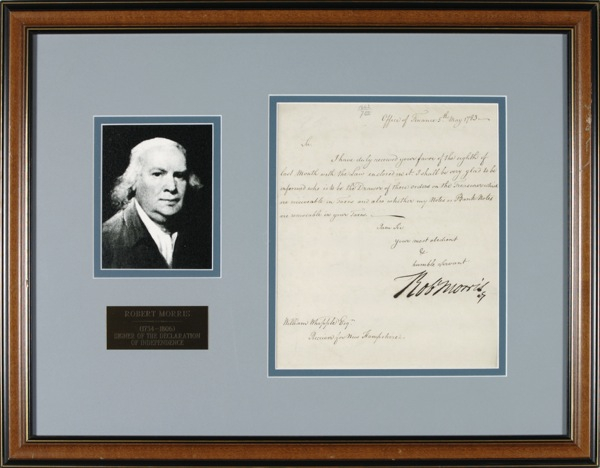 Office of Finance 6th May 1783
Sir
I have duly received your favor of the eighth of
last Month with the Law enclosed in it. I shall be very glad to be
informed who is to be the Drawer of those orders on the
receivable in taxes and also whether my Notes or Bank Notes
are receivable in your
I am Sir
your most obedient
&
humble Servant
RobMorris
William Whipple Esqr
Receiver for New Hampshire
ROBERT MORRIS
(1734-1806)
SIGNER OF THE DECLARATION
OF INDEPENDENCE